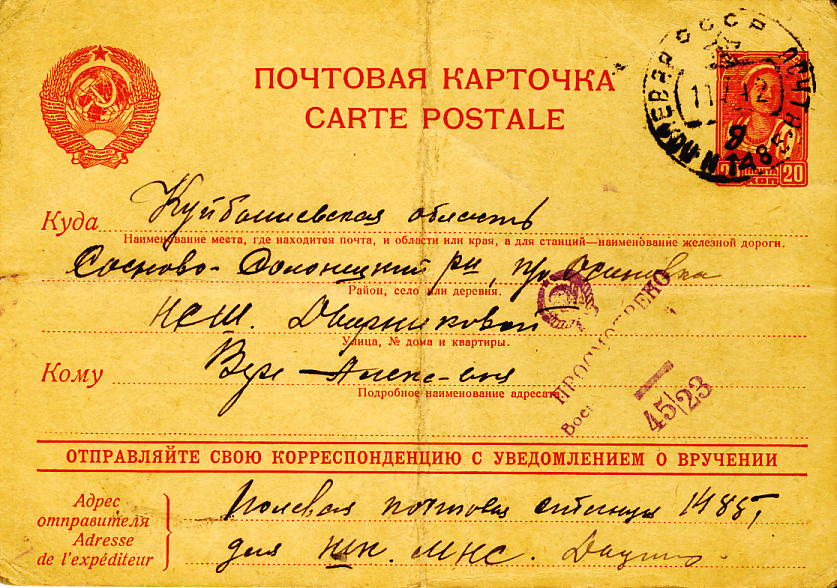 ПОЧТОВАЯ КАРТОЧКА
CARTE POSTALE
СССР
1485
20
КОП
Куда Куйбышевская область
Наименование места, где находится почта, и области или края, а для станций—наименование железной дороги.
Сосново-Солонецкий р-н,
Район, село или деревня.
НСШ. Дворниковой
Улица, № дома и квартиры.
Кому Вере
Подробное наименование адресата
ПРОСМОТРЕНО
45/23
ОТПРАВЛЯЙТЕ СВОЮ КОРРЕСПОНДЕНЦИЮ С УВЕДОМЛЕНИЕМ О ВРУЧЕНИИ
Адрес
отправителя
Adresse
de l'expéditeur
Полевая почтовая станция 1485,
для